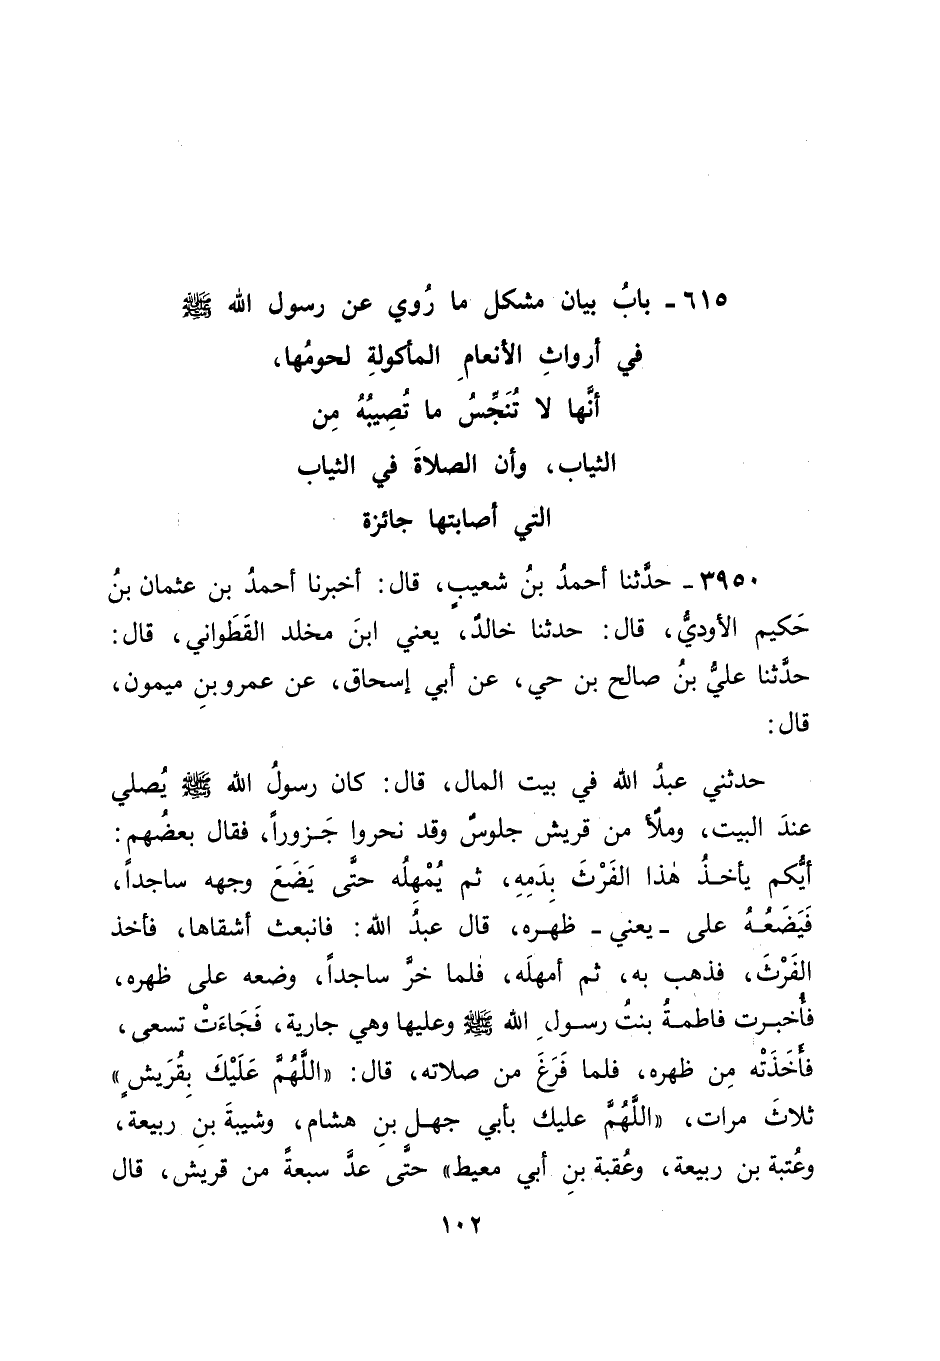 ٦١٥ ـ بابُ بيان مشكل ما رُوي عن رسول الله ﷺ
في أرواثِ الأنعامِ المأكولةِ لحومُها،
أنَّها لا تُنَجِّسُ ما تُصِيبُهُ مِن
الثياب، وأن الصلاةَ في الثياب
التي أصابتها جائزة
٣٩٥٠ ـ حدَّثنا أحمدُ بنُ شعيبٍ، قال: أخبرنا أحمدُ بن عثمان بنُ
حَكيم الأوديُّ، قال: حدثنا خالدٌ، يعني ابنَ مخلد القَطَواني، قال:
حدَّثنا عليُّ بنُ صالح بن حي، عن أبي إسحاق، عن عمرو بنِ ميمون،
قال:
حدثني عبدُ الله في بيت المال، قال: كان رسولُ الله ﷺ يُصلي
عندَ البيت، وملأ من قريش جلوسٌ وقد نحروا جَزوراً، فقال بعضُهم:
أيُّكم يأخذُ هٰذا الفَرْثَ بِدَمِهِ، ثم يُمْهِلُه حتَّى يَضَعَ وجهه ساجداً،
فَيَضَعُهُ على ـ يعني ـ ظهره، قال عبدُ الله: فانبعث أشقاها، فأخذ
الفَرْثَ، فذهب به، ثم أمهلَه، فلما خرَّ ساجداً، وضعه على ظهره،
فأُخبرت فاطمةُ بنتُ رسولِ الله ﷺ وعليها وهي جارية، فَجَاءَتْ تسعى،
فأَخَذَتْه مِن ظهره، فلما فَرَغَ من صلاته، قال: «اللَّهُمَّ عَلَيْكَ بِقُرَيشٍ»
ثلاثَ مرات، «اللَّهُمَّ عليك بأبي جهل بنِ هشام، وشيبةَ بنِ ربيعة،
وعُتبة بن ربيعة، وعُقبة بنِ أبي معيط» حتَّى عدَّ سبعةً من قريش، قال
١٠٢